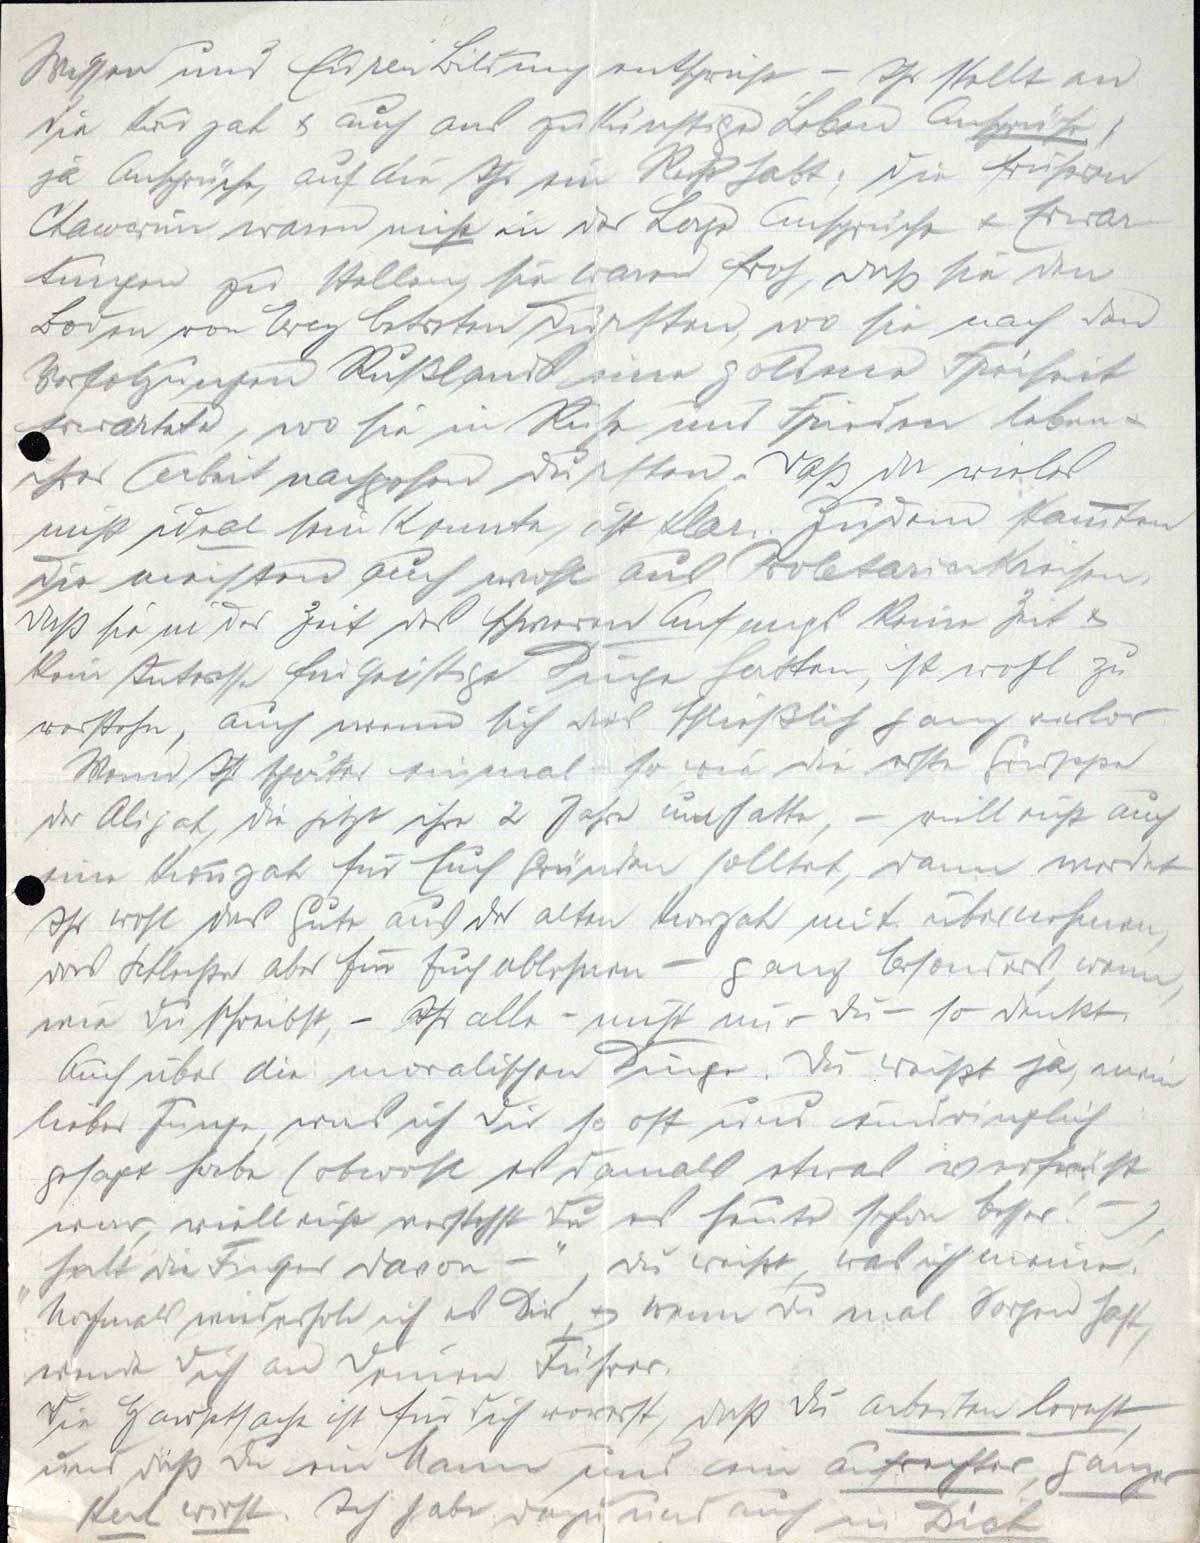 Wissen und Eurer Bildung entspricht – Ihr stellt an
die Kwuzah & auch ans zukünftige Leben Ansprüche,
ja Ansprüche, auf die Ihr ein Recht habt; die früheren
Chawerim waren nicht in der Lage Ansprüche & Erwar-
tungen zu stellen, sie waren froh, daß sie den
Boden von Erez betreten durften, wo sie nach den
Verfolgungen Rußlands eine goldene Freiheit
erwartete, wo sie in Ruhe und Frieden leben &
ihrer Arbeit nachgehen durften. Daß da vieles
nicht ideal sein konnte, ist klar. Zudem stammten
die meisten auch wohl aus Proletarierkreisen.
Daß sie in der Zeit des schweren Anfangs keine Zeit &
kein Interesse für geistige Dinge hatten, ist wohl zu
verstehn, auch wenn sich das schließlich ganz verlor.
Wenn Ihr später einmal – so wie die erste Gruppe
der Alijah, die jetzt ihre 2 Jahre umhatte, – vielleicht auch
eine Kwuzah für Euch gründen solltet, dann werdet
Ihr wohl das Gute aus der alten Kwuzah mit übernehmen,
das Schlechte aber für Euch ablehnen – ganz besonders, wenn,
wie Du schreibst, – Ihr alle – nicht nur Du – so denkt.
Auch über die moralischen Dinge. Du weißt ja, mein
lieber Junge, was ich Dir so oft und eindringlich
gesagt habe (obwohl es damals etwas verfrüht
war, vielleicht verstehst Du es heute schon besser! –),
„halt die Finger davon –“, Du weißt, was ich meine.
Nochmals wiederhole ich es Dir, & wenn Du mal Sorgen hast,
wende Dich an Deinen Führer.
Die Hauptsache ist für Dich vorerst, daß Du arbeiten lernst,
und daß Du ein Mann und ein aufrechter, ganzer
Kerl wirst. Ich habe dazu und auch in Dich